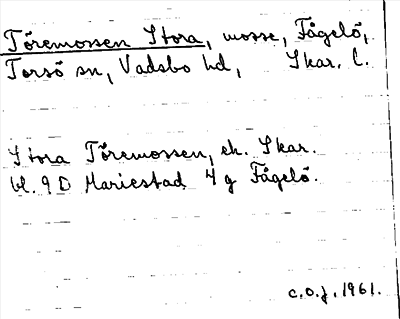 Töremossen Stora, mosse, Fågelö,
Torsö sn, Vadsbo hd, Skar. l.
Stora Töremossen, ek. Skar.
bl. 9 D Mariestad 4 g Fågelö.
c.o.j. 1961.